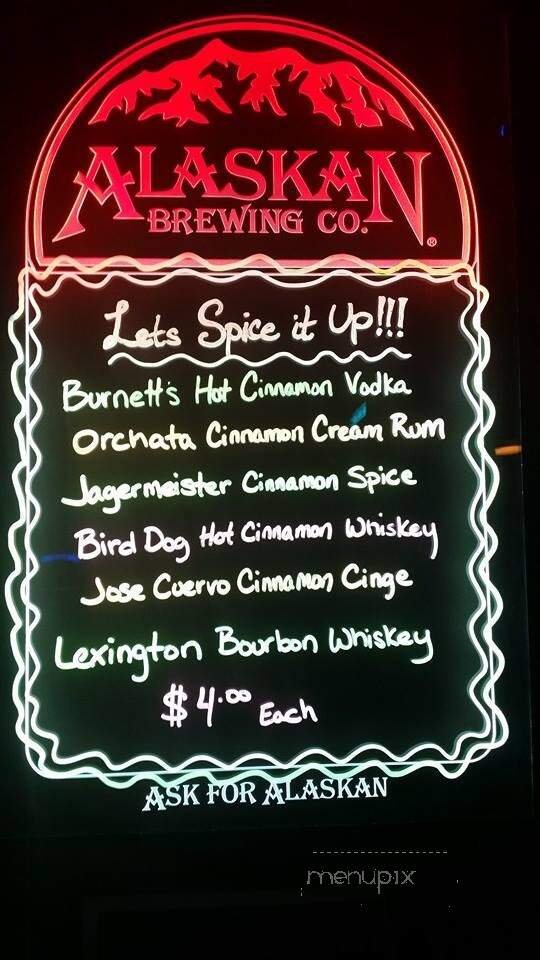 ALASKAN
BREWING CO.®
Lets Spice it Up!!!
Burnett's Hot Cinnamon Vodka
Orchata Cinnamon Cream Rum
Jagermeister Cinnamon Spice
Bird Dog Hot Cinnamon Whiskey
Jose Cuervo Cinnamon Cinge
Lexington Bourbon Whiskey
$4.00 Each
ASK FOR ALASKAN
menupix